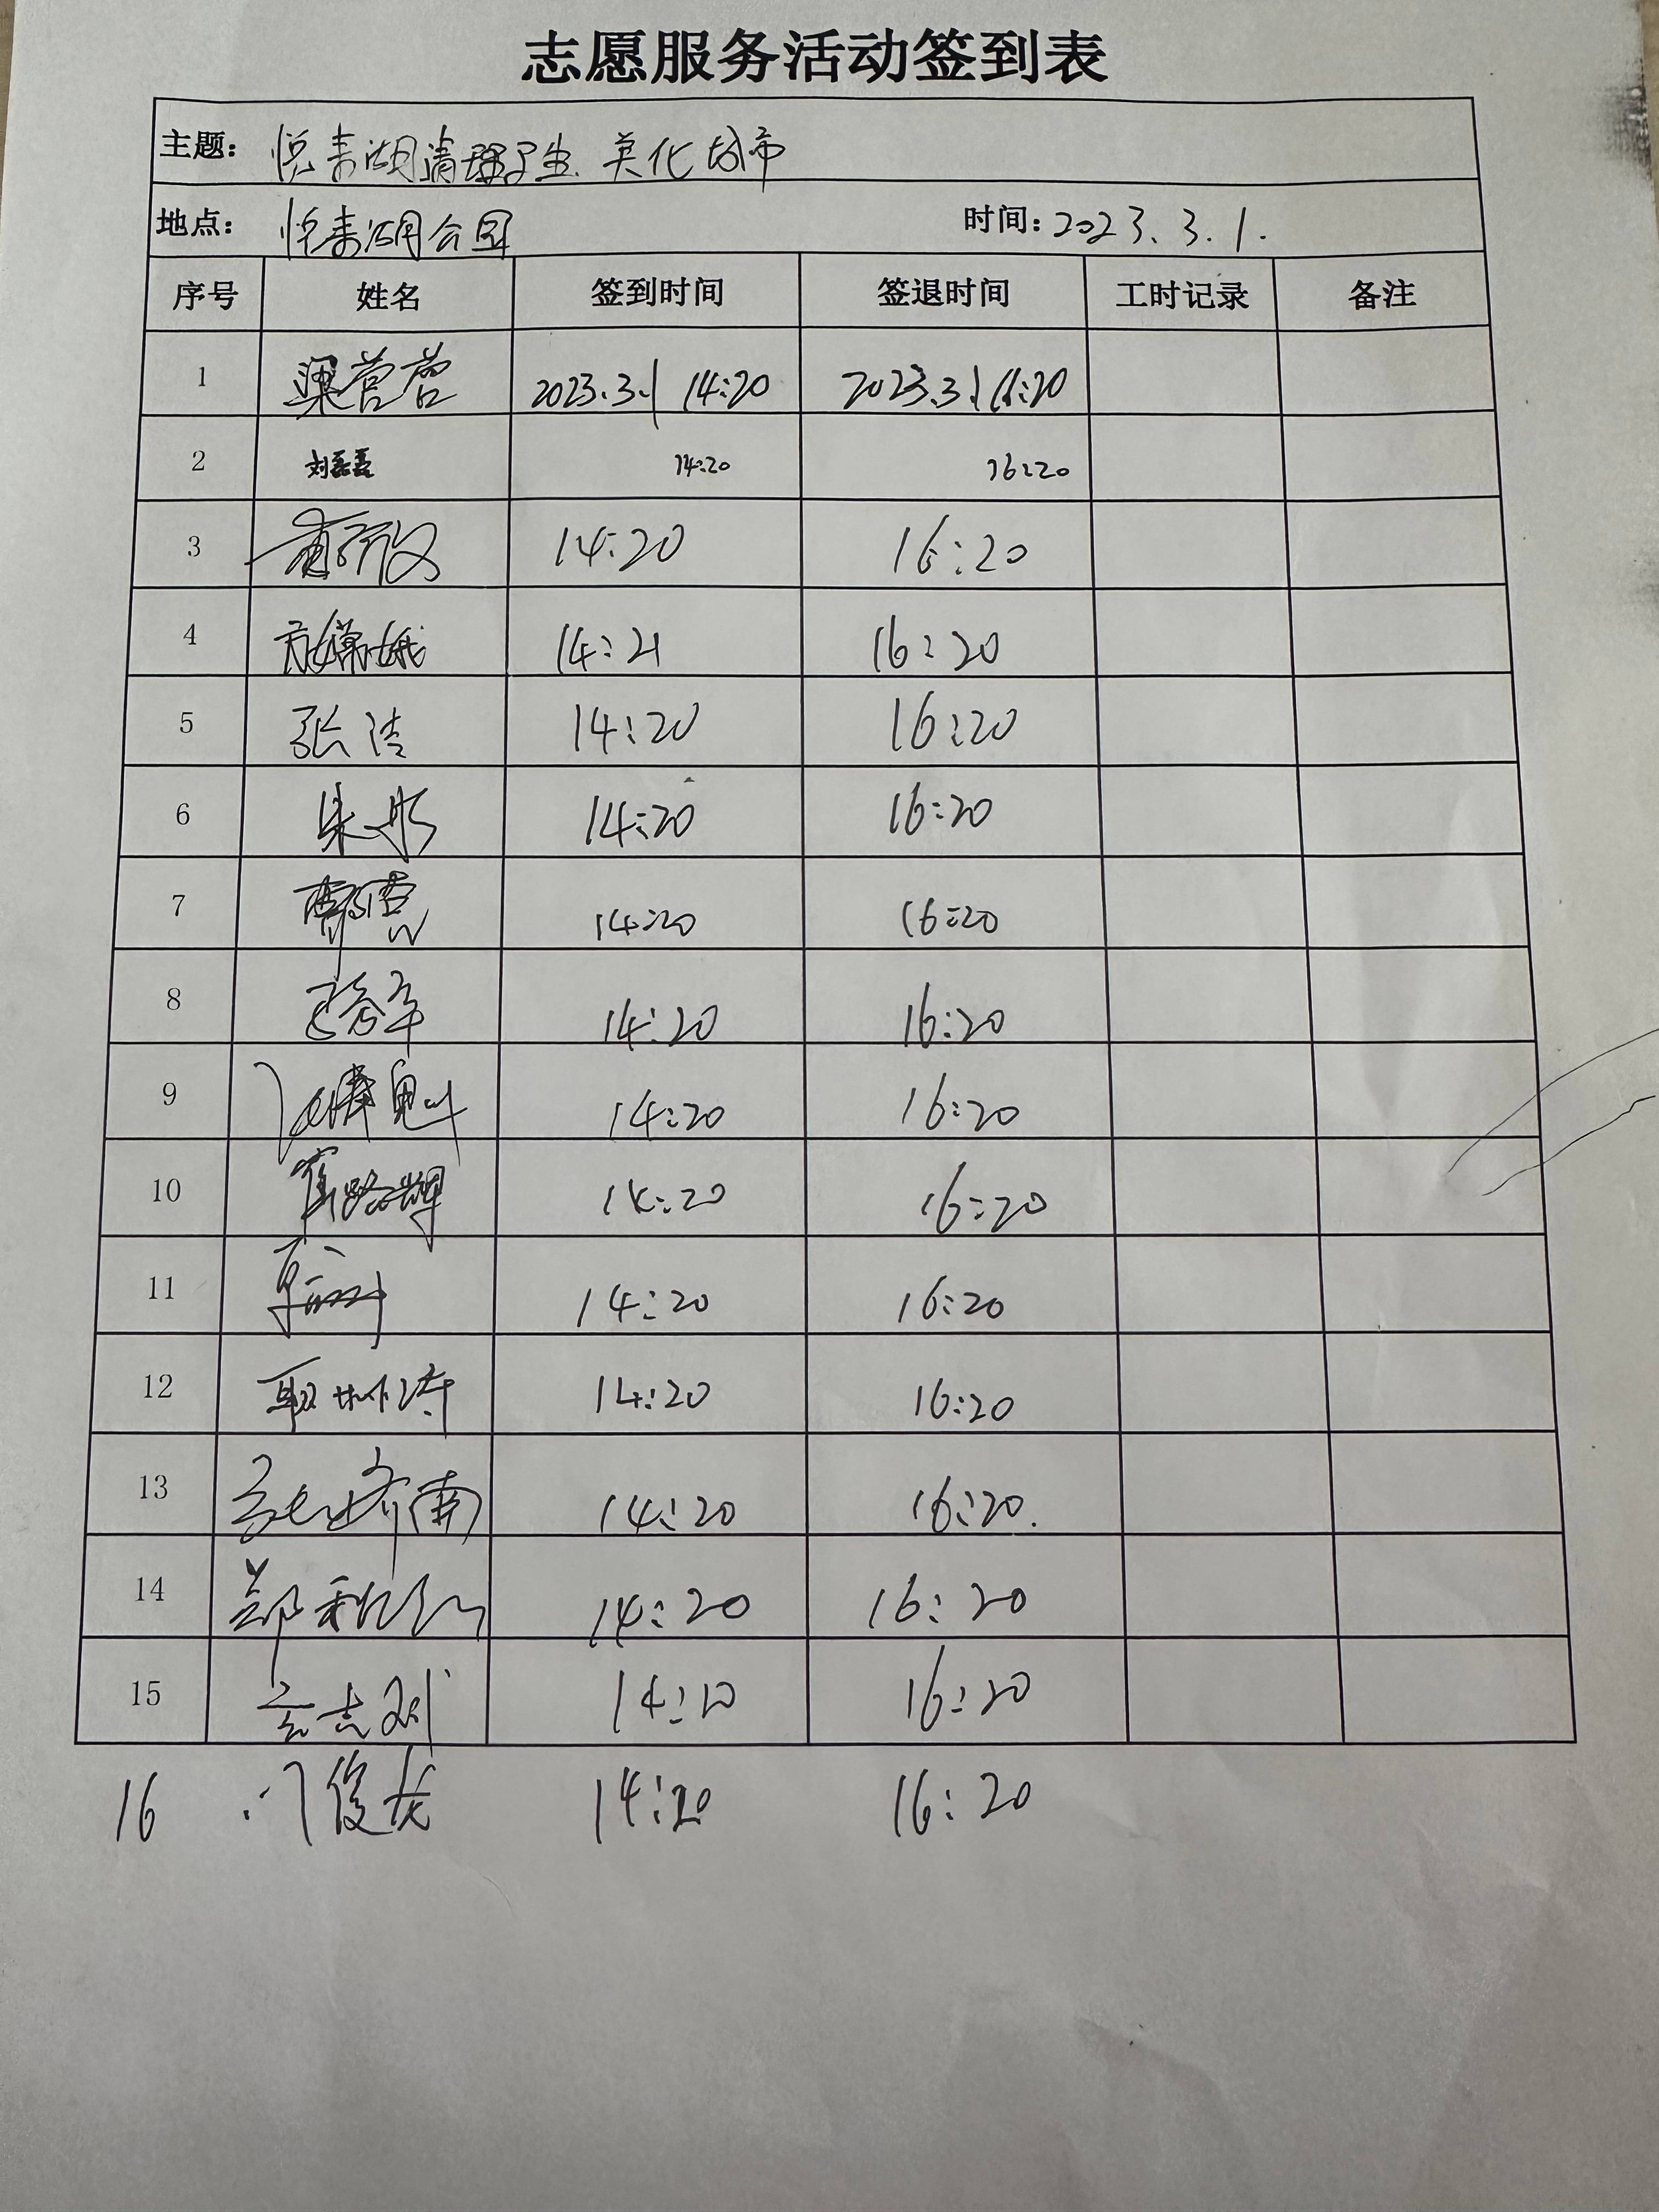 志愿服务活动签到表
主题：悦来湖清理卫生 美化城市
地点：悦来湖公园 时间：2023.3.1.
序号 姓名 签到时间 签退时间 工时记录 备注
1 梁营营 2023.3.1 14:20 2023.3.1 16:20
2 刘磊磊 14:20 16:20
3 14:20 16:20
4 14:21 16:20
5 张洁 14:20 16:20
6 朱彤 14:20 16:20
7 14:20 16:20
8 14:20 16:20
9 14:20 16:20
10 14:20 16:20
11 14:20 16:20
12 14:20 16:20
13 14:20 16:20.
14 14:20 16:20
15 14:20 16:20
16 门俊龙 14:20 16:20